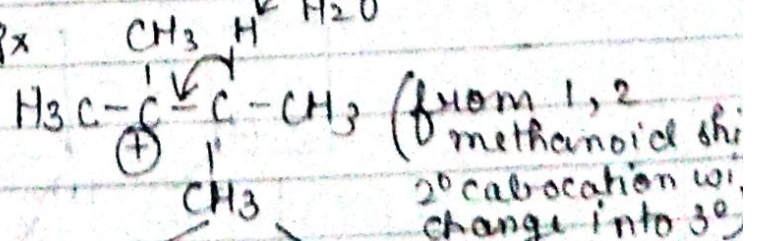 CH3 H H2O
H3C-C-C-CH3 (from 1, 2
⊕ methanoid shi
CH3 2° cabocation wi
change into 3°